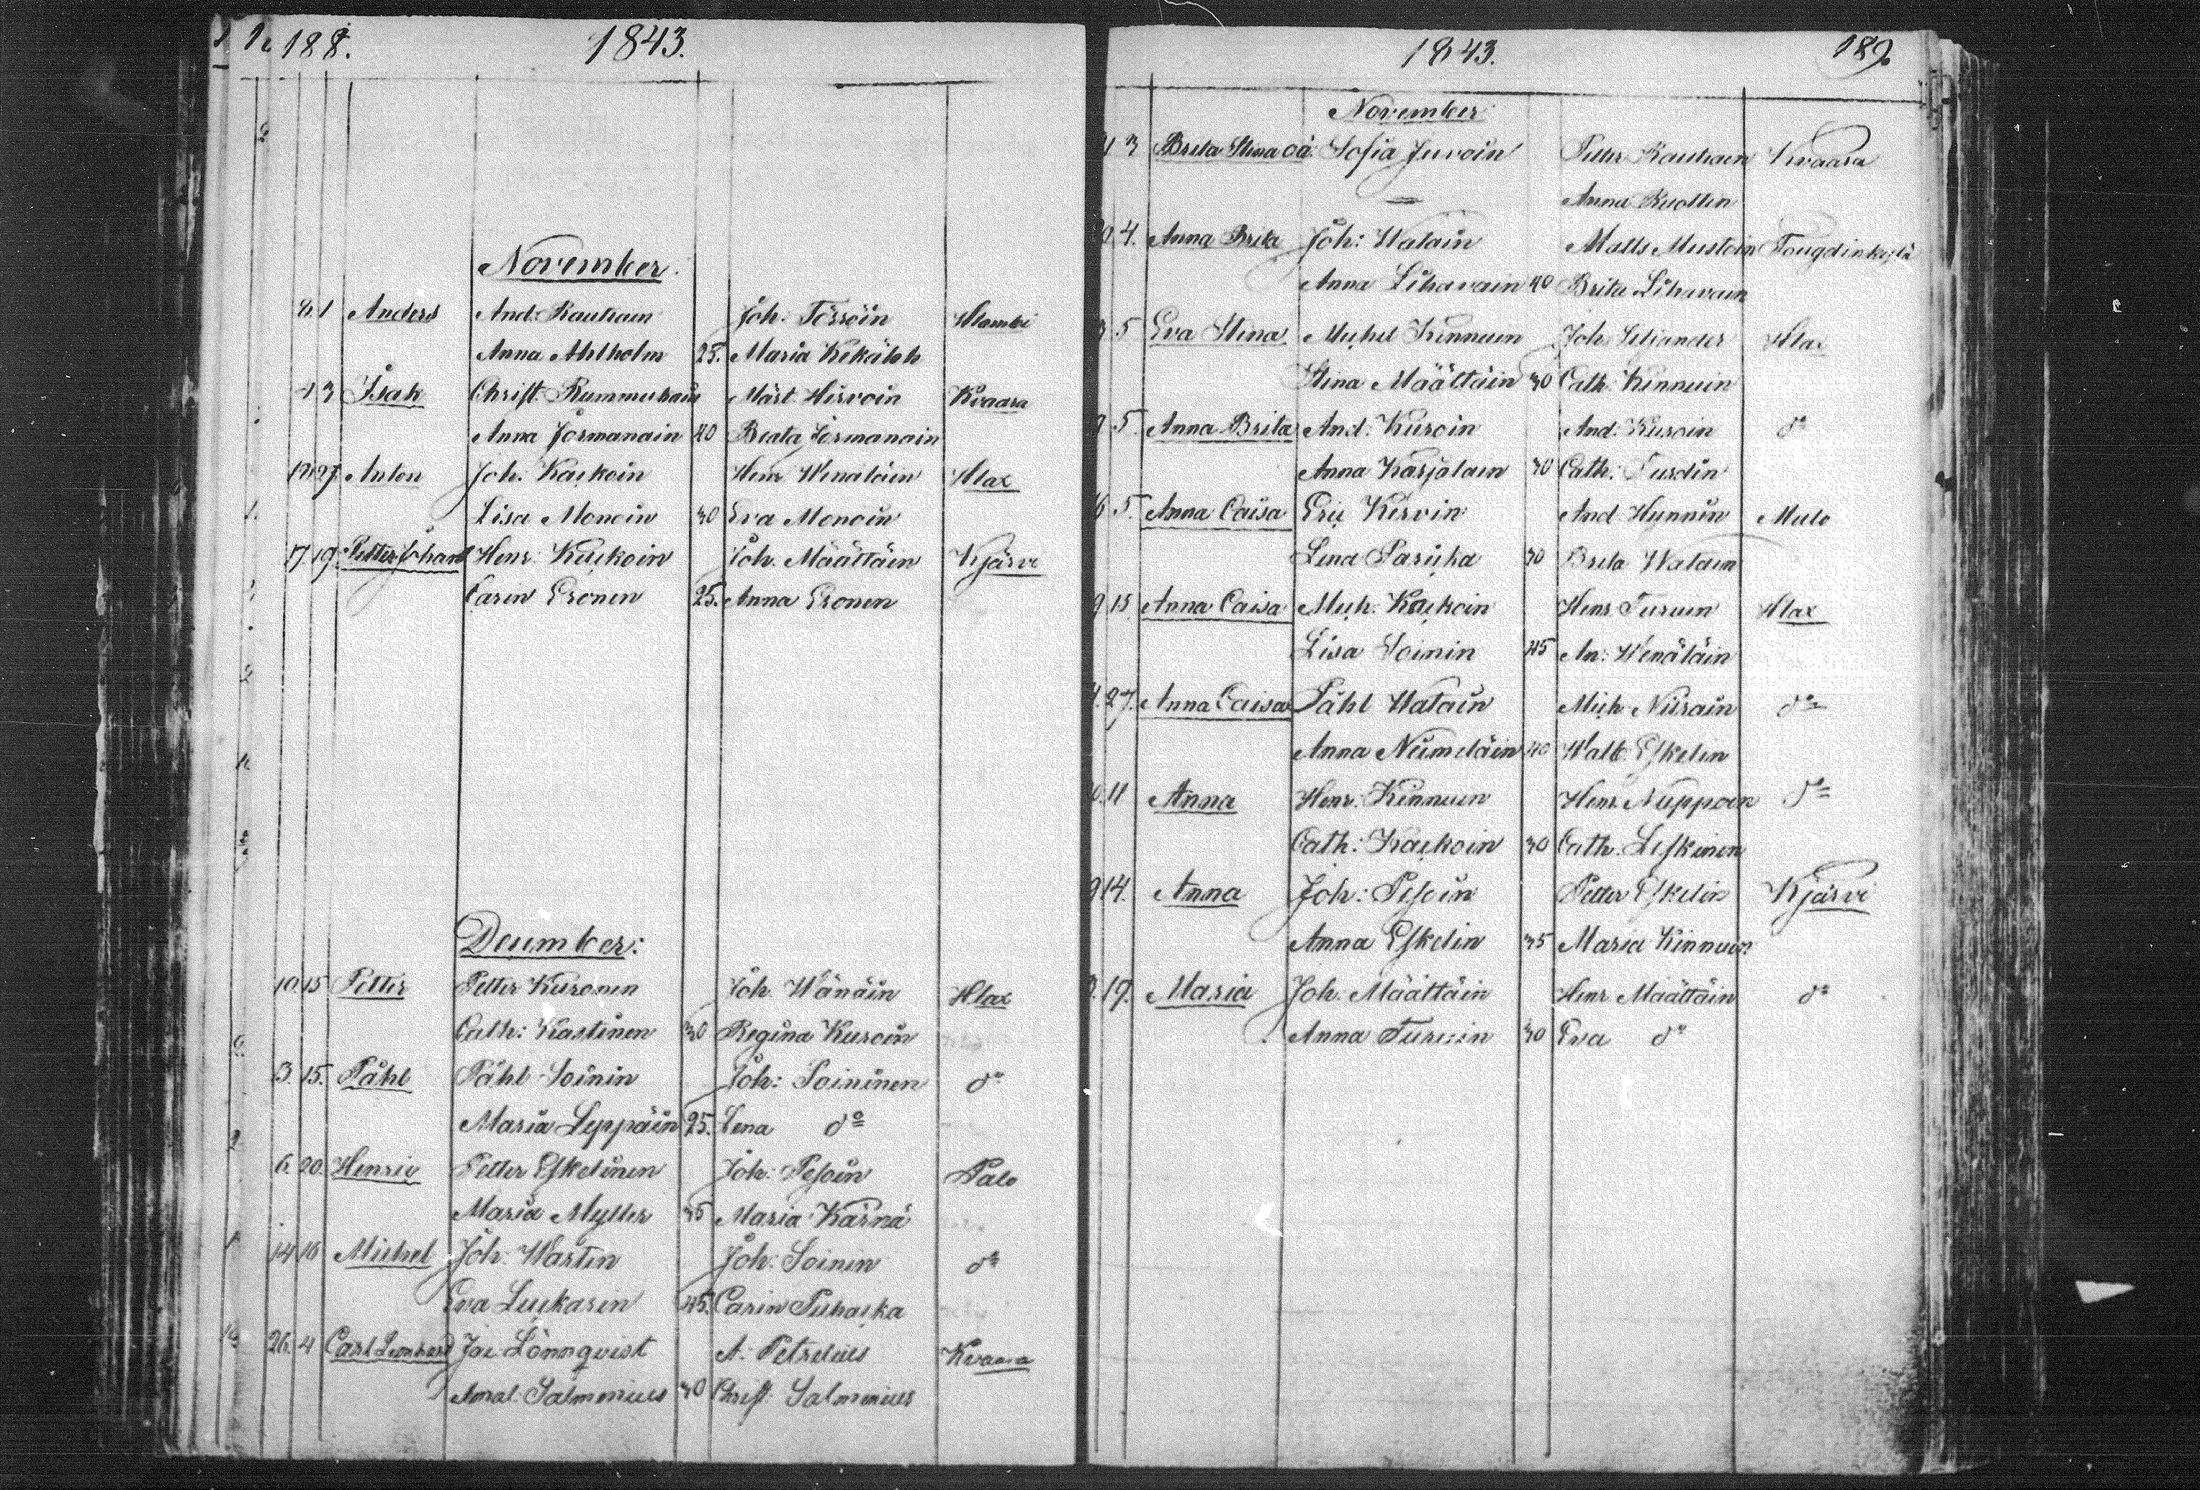 188. 1843.
November.
1 Anders And: Rautiain Joh: Törröin Hlambi
Anna Ahlholm 25. Maria Kekäläh
4 3 Isak Christ. Rummukain Mårt. Hirvoin Kvaara
Anna Jormanain 40 Beata Jormanain
27 Anton Joh. Kackoin Henr Wenäläin Hlax
Lisa Monoin 30 Eva Monoin
17 19. Petter Johan Henr. Kackoin Joh. Määttäin Kjärvi
Carin Eronen 25. Anna Eronen
December:
10 15 Petter Petter Kuronen Joh. Wänäin Hlax
Cath: Kastinen 30 Regina Kuroin
3. 15. Påhl Påhl Soinin Joh: Soininen do
Maria Leppäin 25. Lena do
6. 20. Henric Petter Eskelinen Joh: Pesoin Palo
Maria Myller 35 Maria Kärnä
14 16 Michel Joh: Wartin Joh: Soinin do
Eva Luckarin 45. Carin Puhacka
26. 4 Carl Leonhard Joh: Lönnqvist A. Petrelius Kvaara
Amal. Salmenius 30 Christ. Salmenius
1843. 189.
November
3 Brita Stina oä. Sofia Juvoin Petter Rautiain Kvaara
Anna Kuottin
4. Anna Brita Joh: Watain Matts Mustoin
Anna Lihavain 40 Brita Lihavain
5 Eva Stina Michel Kinnuin Joh. Seljander Hlax
Stina Määttäin 30 Cath: Kinnuin
5. Anna Brita And. Kuroin And. Kuroin do
Anna Karjalain 30 Cath: Tursdin
5. Anna Caisa Eric Kervin And Hynnin Mulo
Lena Paricka 30 Brita Watain
15 Anna Caisa Mich. Kackoin Henr Turuin Hlax
Lisa Soinin 45 An: Wenäläin
27. Anna Caisa Påhl Watain Mich Niirain do
Anna 40 Walb: Eskelin
11 Anna Henr. Kinnuin Henr Nuppoin do
Cath: Kackoin 30 Cath. Leskinen
14. Anna Joh: Pesoin Petter Eskelin Kjärvi
Anna Eskelin 35 Maria Kinnuin
19. Maria Joh. Määttäin Henr Määttäin do
Anna Turuin 30 Eva do